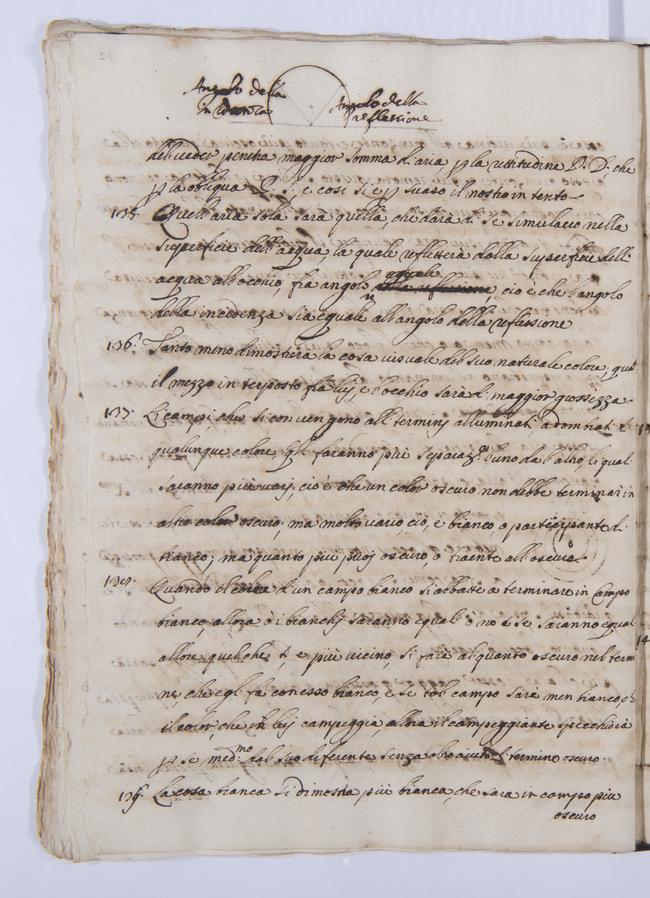 Angolo della
incidenza
Angolo della
reflessione
del veder penetra maggior somma d'aria, p la rettitudine D. D, che
p la obliqua e cosi si è p suaso il nostro intento
135. Quell'aria sola sara quella, che dara di se simulacro nella
superficie dell'acqua la quale refletterà dalla superficie dell'
acqua all'occhio, fra angolo equale, cio è che l'angolo
della incidenza sia equale all'angolo della reflessione
136. Tanto meno dimostrera la cosa visuale del suo naturale colore, qu.to
il mezzo interposto fra lei, e l'occhio sarà di maggior grossezza.
137. Li campi che si convengono alli termini alluminati adombrati di
qualunque colore faranno più separaz.ne l'uno dal'altro, li quali
saranno più varij, cio è che un color oscuro non debbe terminar in
altro color oscuro, ma molto vario, cio, è bianco, o participante di
bianco, ma quanto più puoi oscuro, o traente all'oscuro
138. Quando d'un campo bianco s'abbatte a terminare in campo
bianco, allora ò i bianchi saranno equali ò no e se saranno equal
allora quel che t, è più vicino, si farà alquanto oscuro nel term
ne, che egli fa con esso bianco, e se tal campo sarà men bianco, ch
il color che in lui campeggia, allora il campeggiante spicchierà
p se med.mo dal suo diferente senza altro aiuto di termino oscuro.
139. La cosa bianca si dimostra più bianca, che sara in campo più
oscuro